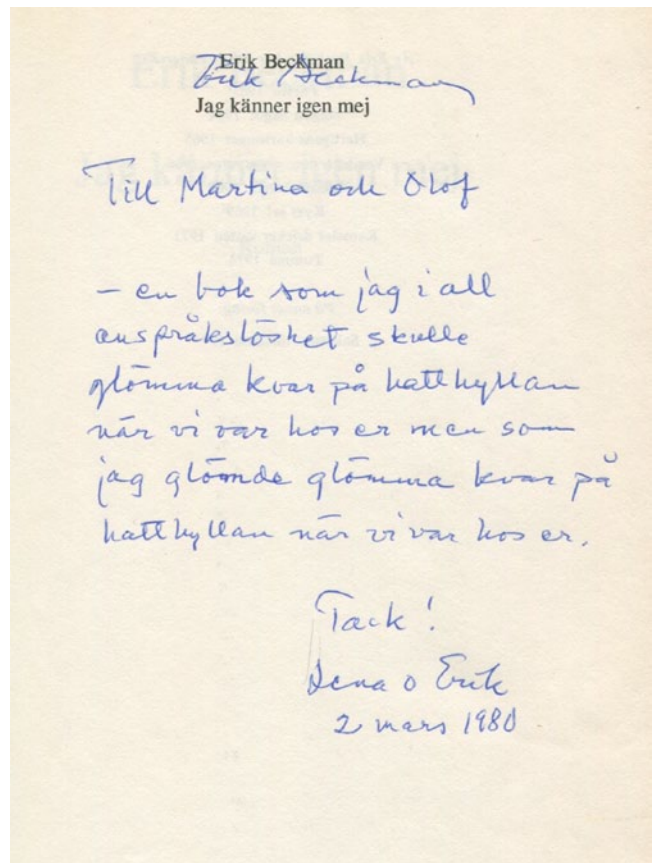 Erik Beckman
Erik Beckman
Jag känner igen mej
Till Martina och Olof
– en bok som jag i all
anspråkslöshet skulle
glömma kvar på hatthyllan
när vi var hos er men som
jag glömde glömma kvar på
hatthyllan när vi var hos er.
Tack!
Lena o Erik
2 mars 1980